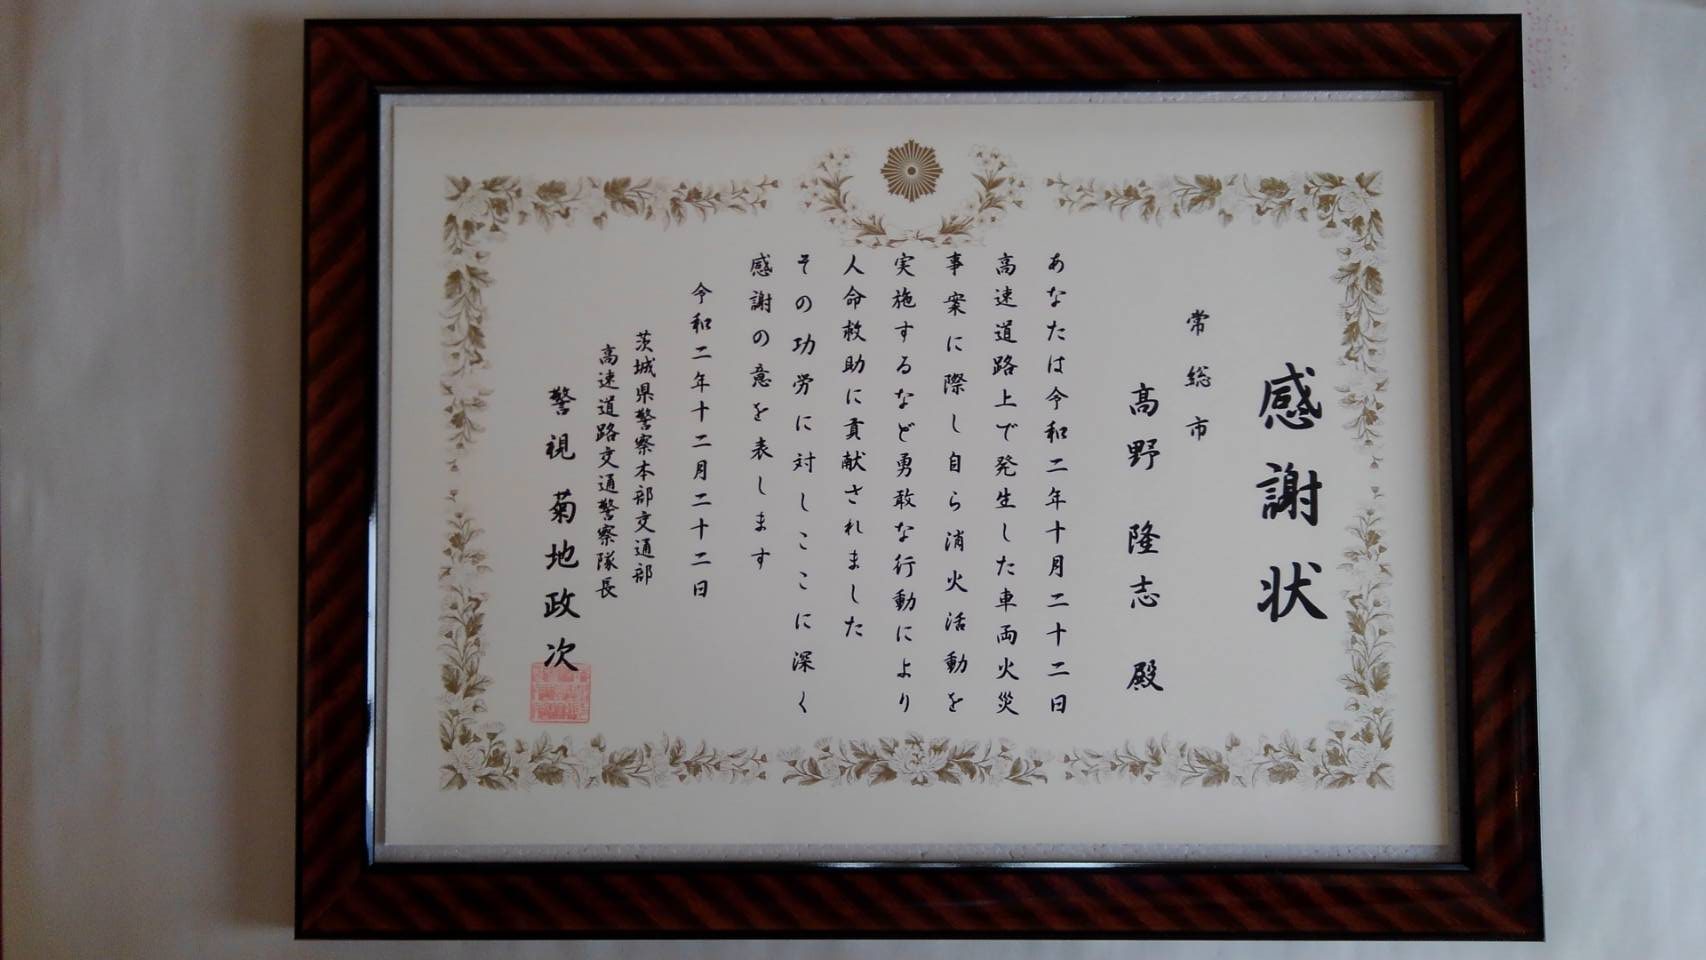 感謝状
常総市
髙野隆志殿
あなたは令和二年十月二十二日
高速道路上で発生した車両火災
事案に際し自ら消火活動を
実施するなど勇敢な行動により
人命救助に貢献されました
その功労に対しここに深く
感謝の意を表します
令和二年十二月二十二日
茨城県警察本部交通部
高速道路交通警察隊長
警視菊地政次